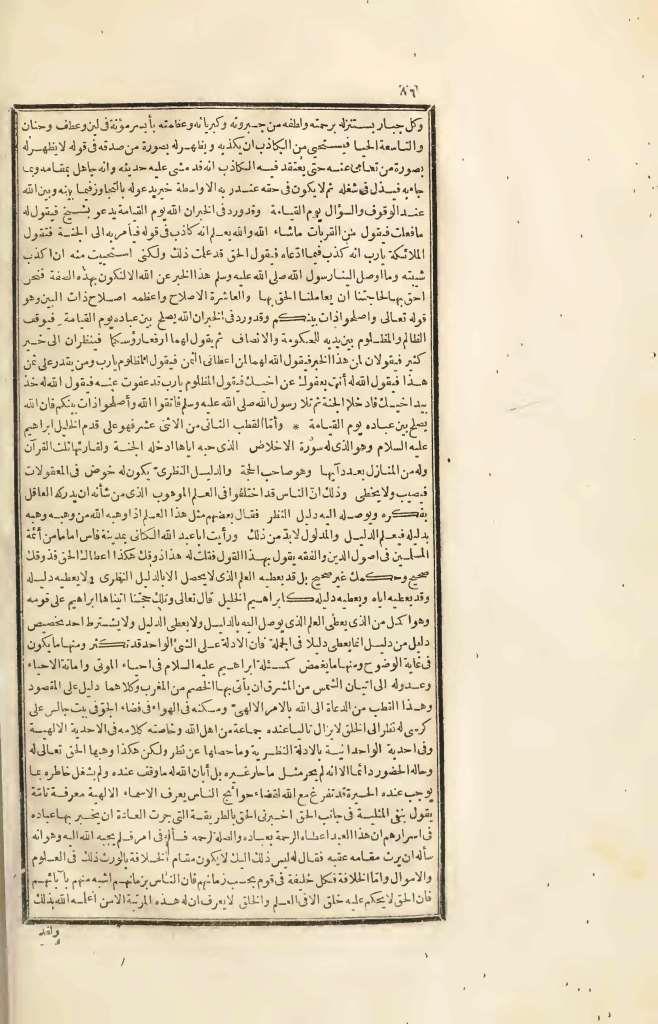 ٨٦
وكل جبار يستنزله برحمته ولطفه من جبروته وكبريائه وعظمته بأيسر مؤنة في لين وعطف وحنان
والتاسعة الحيا فيستحيي من الكاذب أن يكذبه ويظهر له بصورة من صدقه في قوله لا يظهر له
بصورة من تعامى عنه حتى يعتقد فيه الكاذب انه قد مشى عليه حديثه وانه جاهل بمقامه وبما
جاء به فيسذل في شغله ثم لا يكون في حقه عند ربه الا واسطة خير يدعو له بالتجاوز فيما بينه وبين الله
عند الوقوف والسؤال يوم القيامة وقد ورد في الخبر ان الله يوم القيامة يدعو بشيخ فيقول له
ما فعلت فيقول من القربات ما شاء الله والله يعلم انه كاذب في قوله فيأمر به الى الجنة فتقول
الملائكة يارب انه كذب فيما ادعاه فيقول الحق قد علمت ذلك ولكنى استحييت منه ان اكذب
شيبته وما اوصل الينا رسول الله صلى الله عليه وسلم هذا الخبر عن الله الا لنكون بهذه الصفة فنحن
احق بها لحاجتنا ان يعاملنا الحق بها والعاشرة الاصلاح واعظمه اصلاح ذات البين وهو
قوله تعالى واصلحوا ذات بينكم وقد ورد في الخبر ان الله يصلح بين عباده يوم القيامة فيوقف
الظالم والمظلوم بين يديه للحكومة والانصاف ثم يقول لهما ارفعا رؤسكما فينظران الى خير
كثير فيقولان لمن هذا الخير فيقول الله لهما لمن اعطانى الثمن فيقول المظلوم يارب ومن يقدر على ثمن
هذا فيقول الله له أنت بعفوك عن اخيك فيقول المظلوم يارب قد عفوت عنه فيقول الله له خذ
بيد اخيك فادخلا الجنة ثم تلا رسول الله صلى الله عليه وسلم فاتقوا الله وأصلحوا ذات بينكم فان الله
يصلح بين عباده يوم القيامة * وأما القطب الثانى من الاثنى عشر فهو على قدم الخليل ابراهيم
عليه السلام وهو الذى له سورة الاخلاص الذى حبه اياها ادخله الجنة ولقارئها ثلث القرآن
وله من المنازل بعدد آيها وهو صاحب الحجة والدليل النظرى يكون له خوض في المعقولات
فيصيب ولا يخطى وذلك ان الناس قد اختلفوا في العلم الموهوب الذى من شأنه ان يدركه العاقل
بفكره ويوصله اليه دليل النظر فقال بعضهم مثل هذا العلم اذا وهبه الله من وهبه وهبه
بدليله فيعلم الدليل والمدلول لابد من ذلك ورأيت ابا عبد الله الكتانى بمدينة فاس اماما من أئمة
المسلمين في اصول الدين والفقه يقول بهذا القول فقلت له هذا ذوقك هكذا اعطاك الحق فذوقك
صحيح وحكمك غير صحيح بل قد يعطيه العلم الذى لا يحصل الا بالدليل النظرى ولا يعطيه دليله
وقد يعطيه اياه ويعطيه دليله كابراهيم الخليل قال تعالى وتلك حجتنا آتيناها ابراهيم على قومه
وهو اكمل من الذى يعطى العلم الذى يوصل اليه بالدليل ولا يعطى الدليل ولا يشترط احد تخصيص
دليل من دليل انما يعطى دليلا في الجملة فان الادلة على الشئ الواحد قد تكثر ومنها ما يكون
في غاية الوضوح ومنها ما يغمض كمسئلة ابراهيم عليه السلام في احياء الموتى واماتة الاحياء
وعدوله الى اتيان الشمس من المشرق ان يأتى بها الخصم من المغرب وكلاهما دليل على المقصود
وهذا القطب من الدعاة الى الله بالامر الالهى ومسكنه في الهواء في فضاء الجو في بيت جالس على
كرسى له نظر الى الخلق لا يزال تاليا عنده جماعة من اهل الله وخاصته كلامه في الاحدية الالهية
وفي احدية الواحد انية بالادلة النظرية وما حصلها عن نظر ولكن هكذا وهبها الحق تعالى له
وحاله الحضور دائما الا انه لم يحر مثل ما حار غيره بل أبان الله له ما وقف عنده ولم يشغل خاطره بما
يوجب عنده الحيرة قد تفرغ مع الله لقضاء حوائج الناس يعرف الاسماء الالهية معرفة تامة
يقول بنفى المثلية في جانب الحق اخبرنى الحق بالطريقة التى جرت العادة ان يخبر بها عباده
في اسرارهم ان هذا العبد اعطاه الرحمة بعباده والصلة لرحمه فسأله في امر فلم يجبه الله اليه وهو انه
سأله ان يرث مقامه عقبه فقال له ليس ذلك اليك لا يكون مقام الخلافة بالورث ذلك في العلوم
والاموال واما الخلافة فكل خليفة في قوم بحسب زمانهم فان الناس بزمانهم اشبه منهم بآبائهم
فان الحق لا يحكم عليه خلق الا في العلم والخلق لا يعرف ان له هذه المرتبة الا من أعلمه الله بذلك
ولقيد